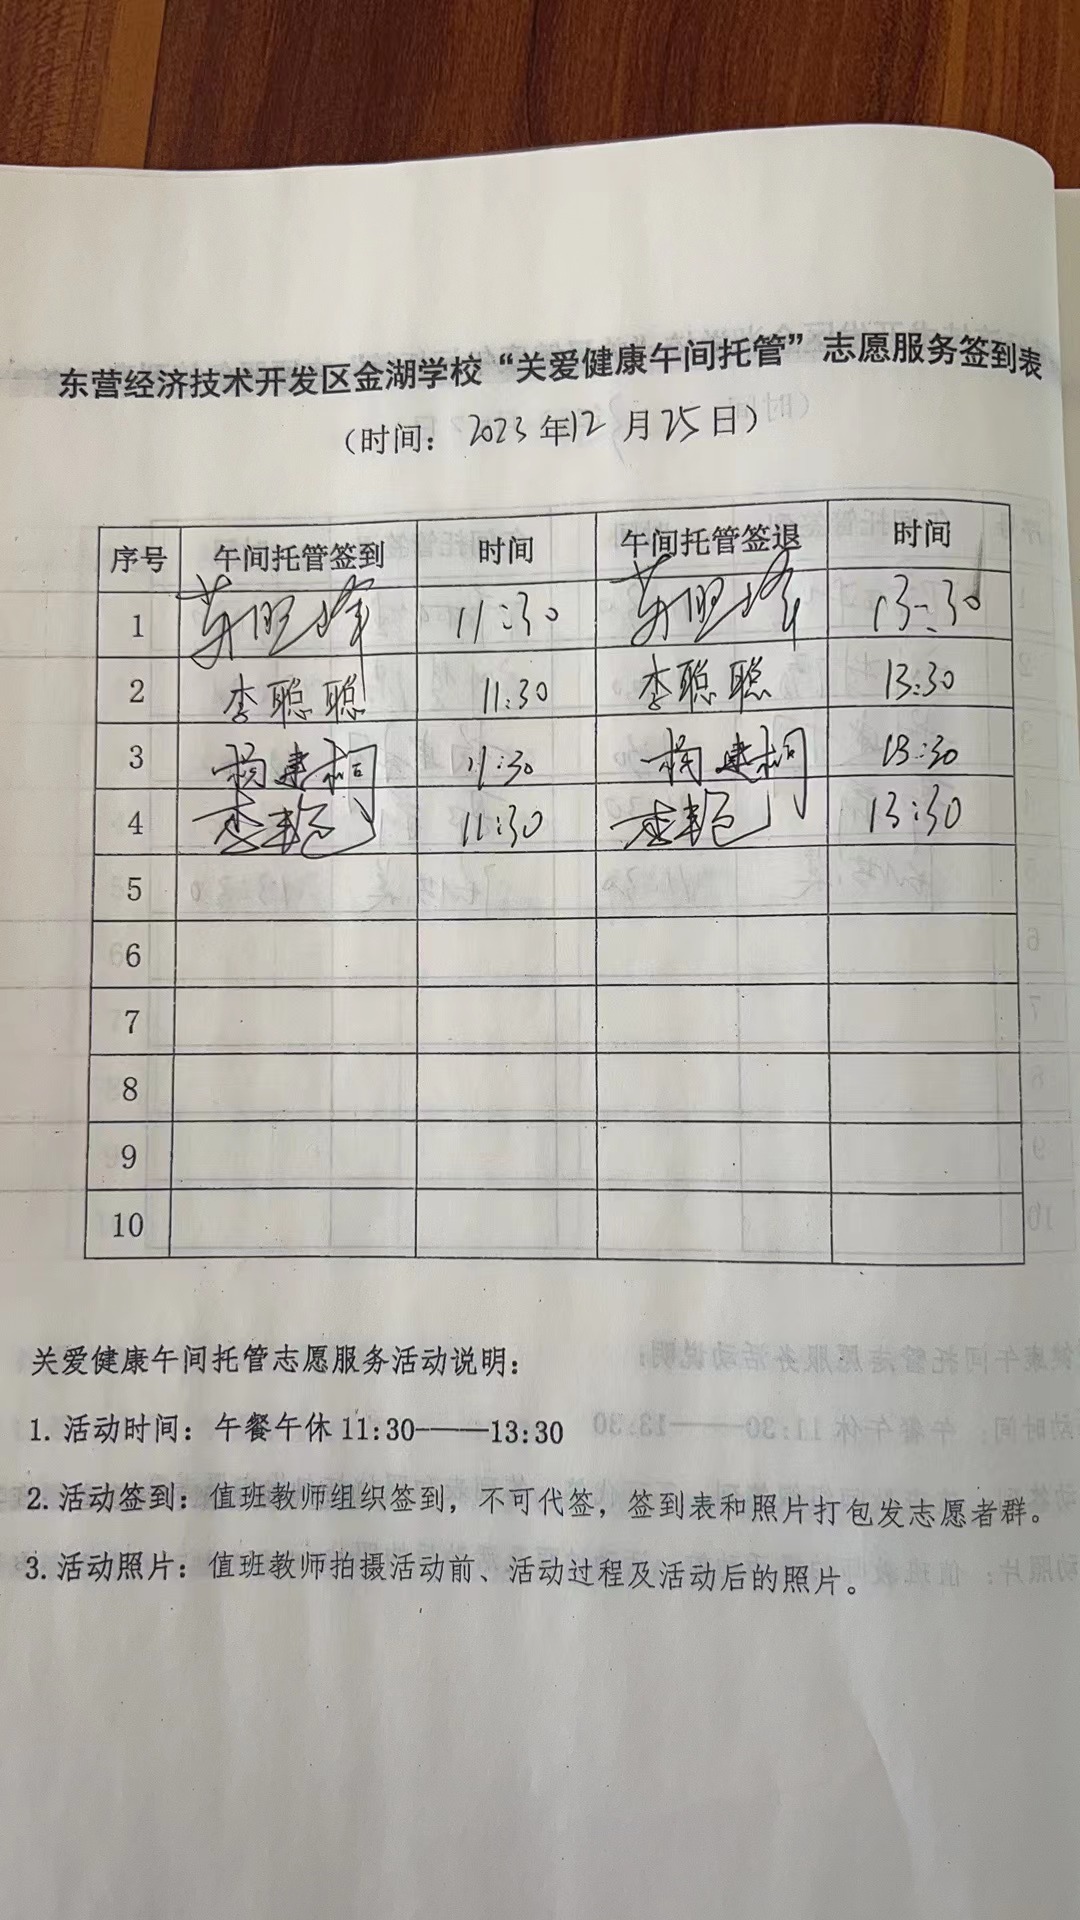 东营经济技术开发区金湖学校“关爱健康午间托管”志愿服务签到表
（时间：2023年12月25日）
序号 午间托管签到 时间 午间托管签退 时间
1 11:30 13:30
2 李聪聪 11:30 李聪聪 13:30
3 杨建桐 11:30 杨建桐 13:30
4 李艳 11:30 李艳 13:30
5
6
7
8
9
10
关爱健康午间托管志愿服务活动说明：
1. 活动时间：午餐午休 11:30——13:30
2. 活动签到：值班教师组织签到，不可代签，签到表和照片打包发志愿者群。
3. 活动照片：值班教师拍摄活动前、活动过程及活动后的照片。